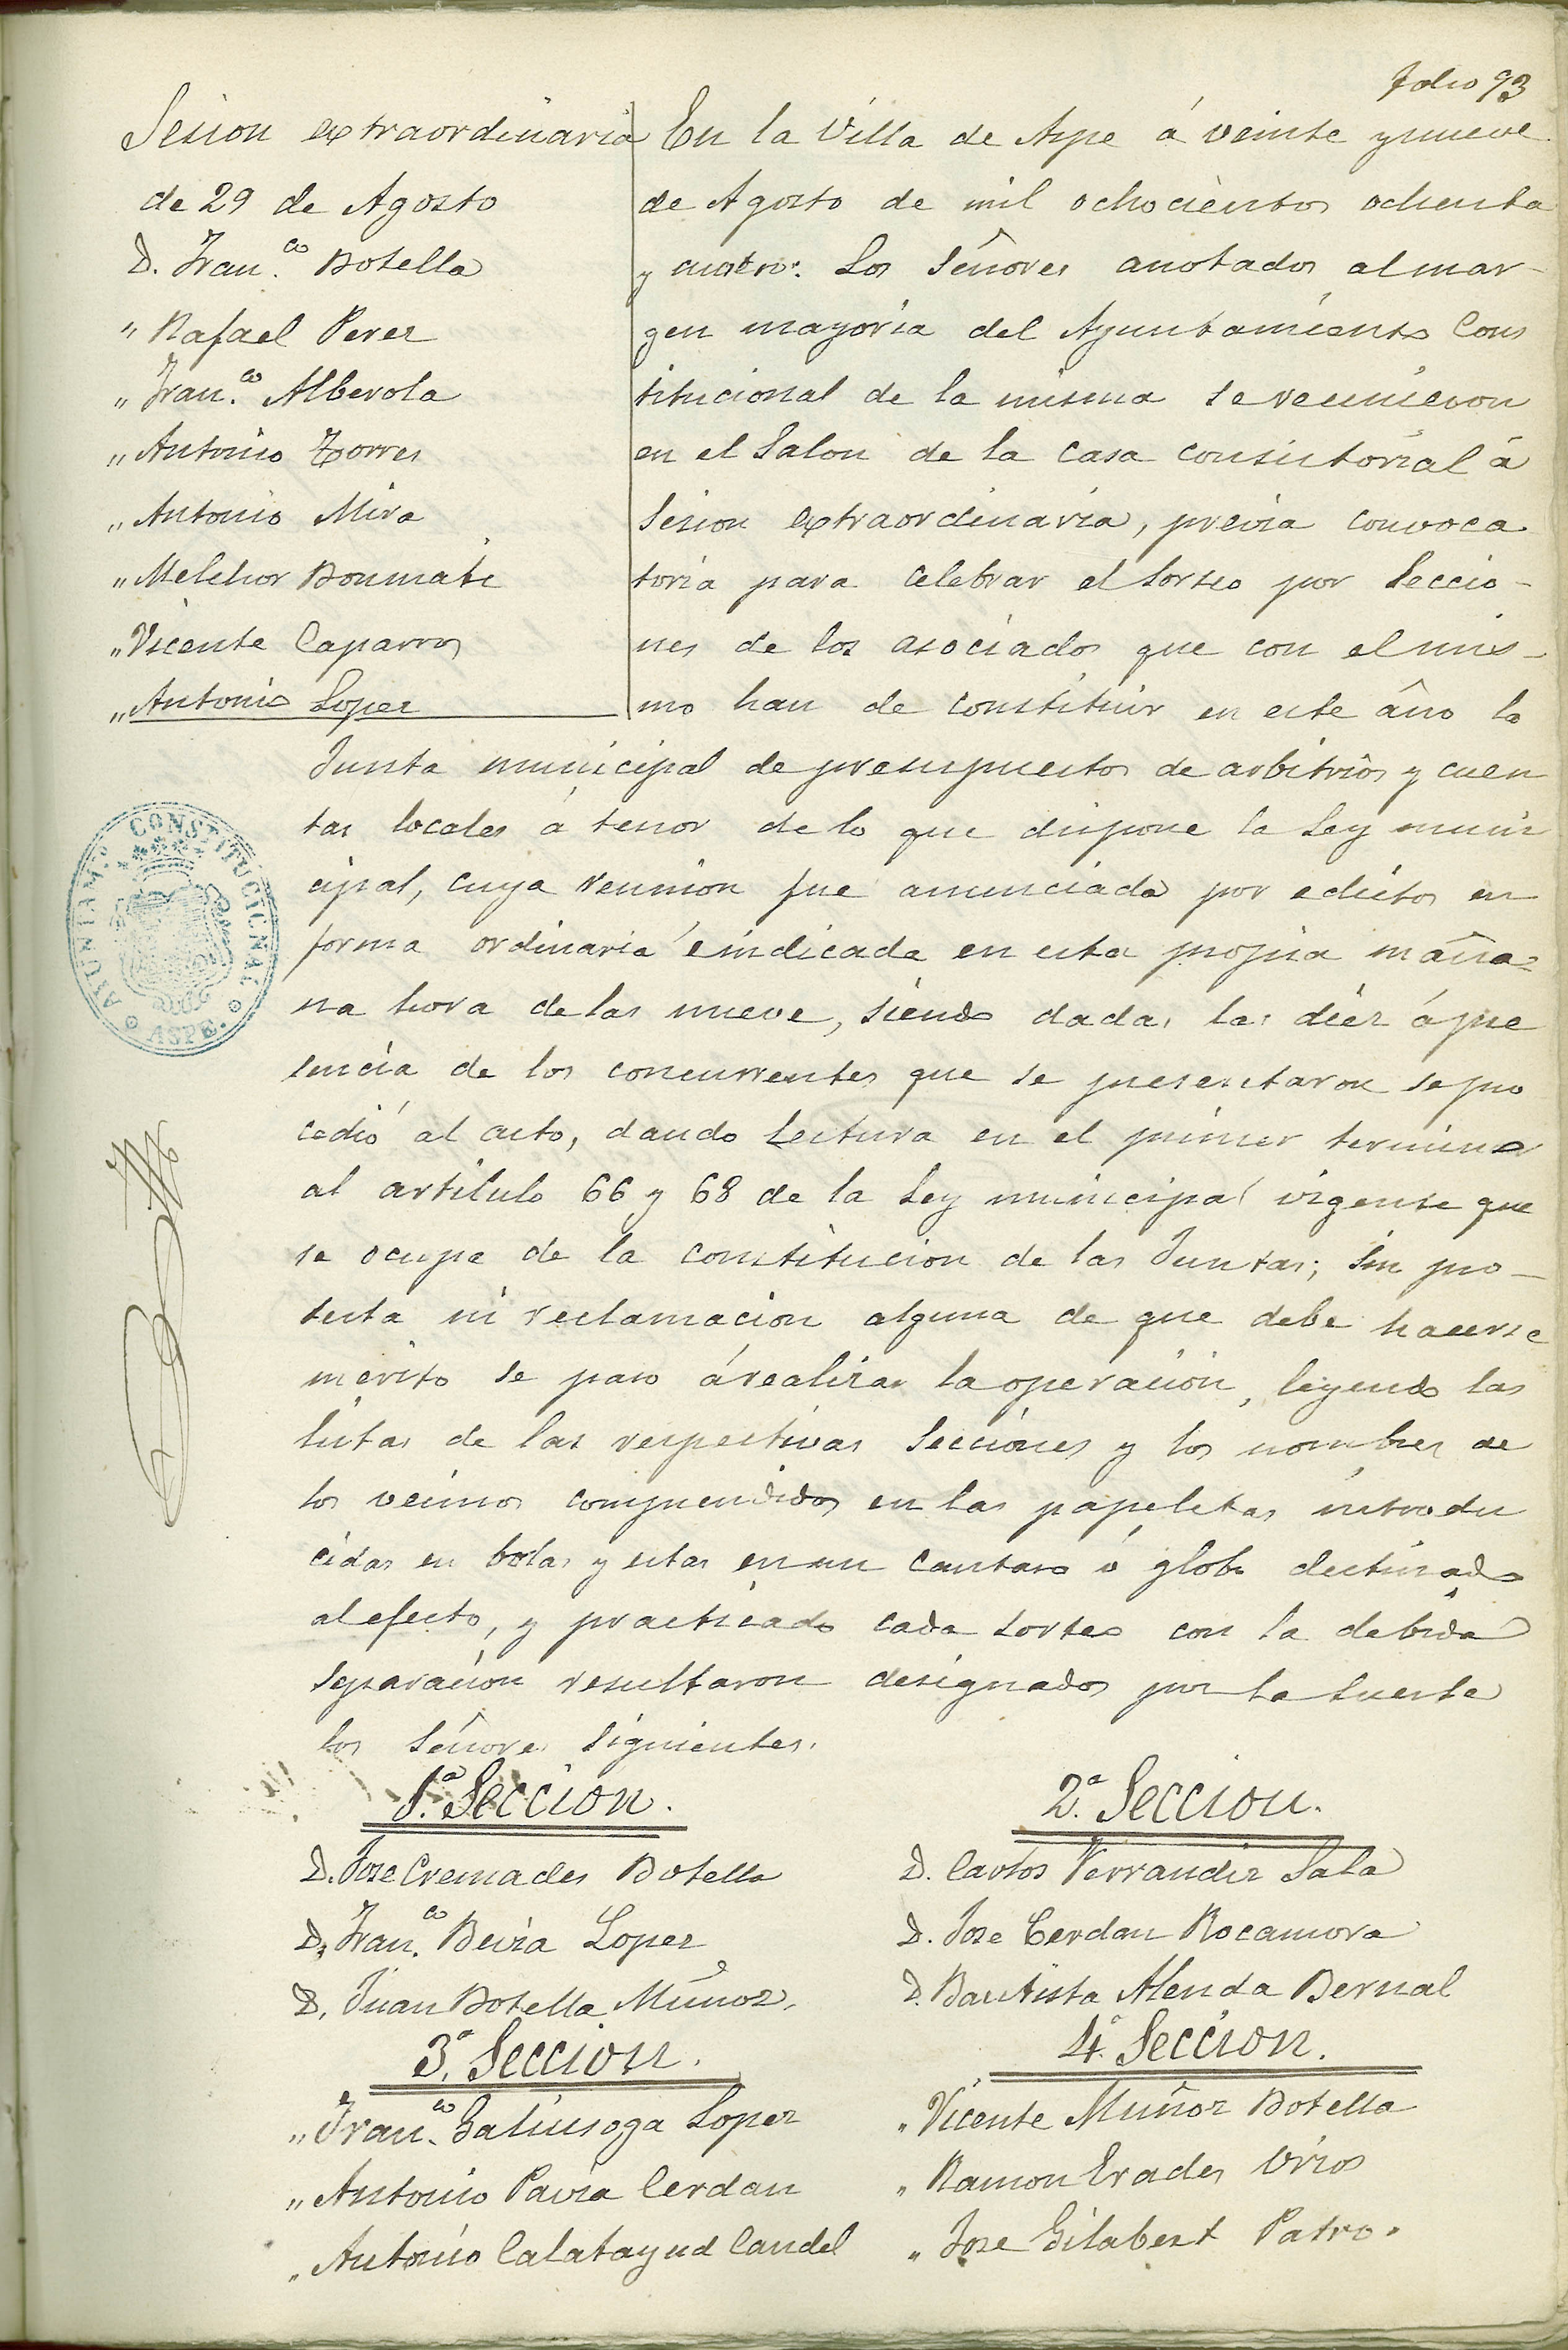 Folio 93
Sesion extraordinaria
de 29 de Agosto
D. Fran.co Botella
" Rafael Perez
" Fran.co Alberola
" Antonio Torres
" Antonio Mira
" Melchor Bonmati
" Vicente Caparros
" Antonio Lopez
En la Villa de Aspe á veinte y nueve
de Agosto de mil ochocientos ochenta
y cuatro: Los Señores anotados al mar-
gen mayoria del Ayuntamiento Cons
titucional de la misma se reunieron
en el Salon de la Casa Consistorial á
Sesion extraordinaria, previa convoca
toria para celebrar el sorteo por Seccio-
nes de los asociados que con el mis-
mo han de constituir en este año la
Junta municipal de presupuestos de arbitrios y cuen
tas locales á tenor de lo que dispone la Ley muni
cipal, cuya reunion fue anunciada por edictos en
forma ordinaria é indicada en esta propia maña-
na hora de las nueve, siendo dadas las diez á pre
sencia de los concurrentes que se presentaron se pro
cedió al acto, dando lectura en el primer termino
al artilulo 66 y 68 de la Ley municipal vigente que
se ocupa de la constitucion de las Juntas; sin pro-
testa ni reclamacion alguna de que debe hacerse
merito se paso á realizar la operacion, leyendo las
listas de las respectivas Secciones y los nombres de
los vecinos comprendidos en las papeletas introdu
cidas en bolas y estas en un cantaro ó globo destinado
al efecto, y practicado cada sorteo con la debida
separacion resultaron designados por la suerte
los Señores siguientes.
1.ª Seccion.
D. Jose Cremades Botella
D. Fran.co Beviá Lopez
D. Juan Botella Muñoz.
2.ª Seccion.
D. Carlos Ferrandiz Sala
D. Jose Cerdan Rocamora
D. Bautista Alenda Bernal
3.ª Seccion.
" Fran.co Galinsoga Lopez
" Antonio Pavia Cerdan
" Antonio Calatayud Candel
4.ª Seccion.
" Vicente Muñoz Botella
" Ramon Erades Urios
" Jose Gilabert Patro.
AYUNTAM.º CONSTITUCIONAL
ASPE.